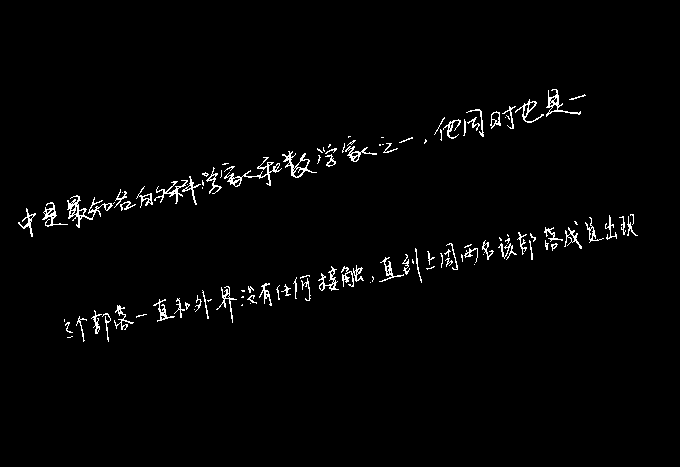 中是最知名的科学家和数学家之一，他同时也是一
这个部落一直和外界没有任何接触，直到上周两名该部落成员出现